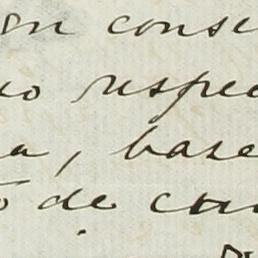 en conse
io respec
a, base
o de con